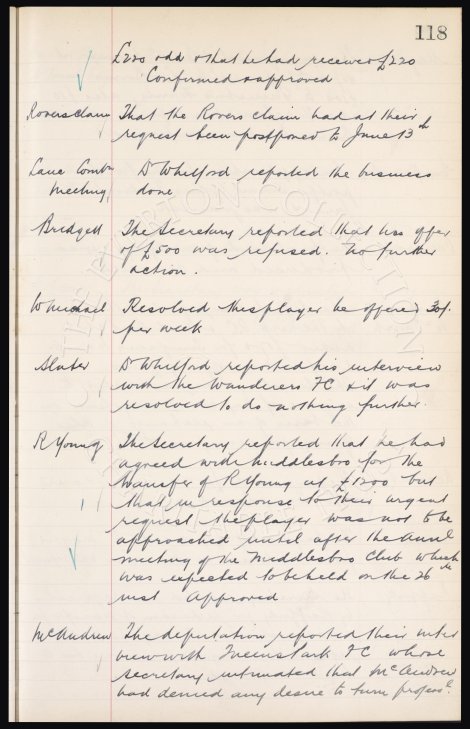 118
£220 odd & that he had received £220
Confirmed & approved
Rovers claim That the Rovers claim had at their
request been postponed to June 13th
Lanc Combn Dr Whitford reported the business
meeting, done
Bridgett The Secretary reported that his offer
of £500 was refused. No further
action.
W Michael Resolved this player be offered 30/-
per week
Slater Dr Whitford reported his interview
with the Wanderers FC & it was
resolved to do nothing further.
R Young The Secretary reported that he had
agreed with Middlesbro for the
transfer of R Young at £1200 but
that in response to their urgent
request the player was not to be
approached until after the annl
meeting of the Middlesbro Club which
was expected to be held on the 26th
inst Approved
McAndrew The deputation reported their inter
view with Queens Park FC whose
secretary intimated that McAndrew
had denied any desire to turn profess.l
THE EVERTON COLLECTION